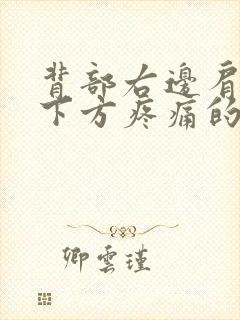 背部右邊肩
下方疼痛的
卿雲瑾